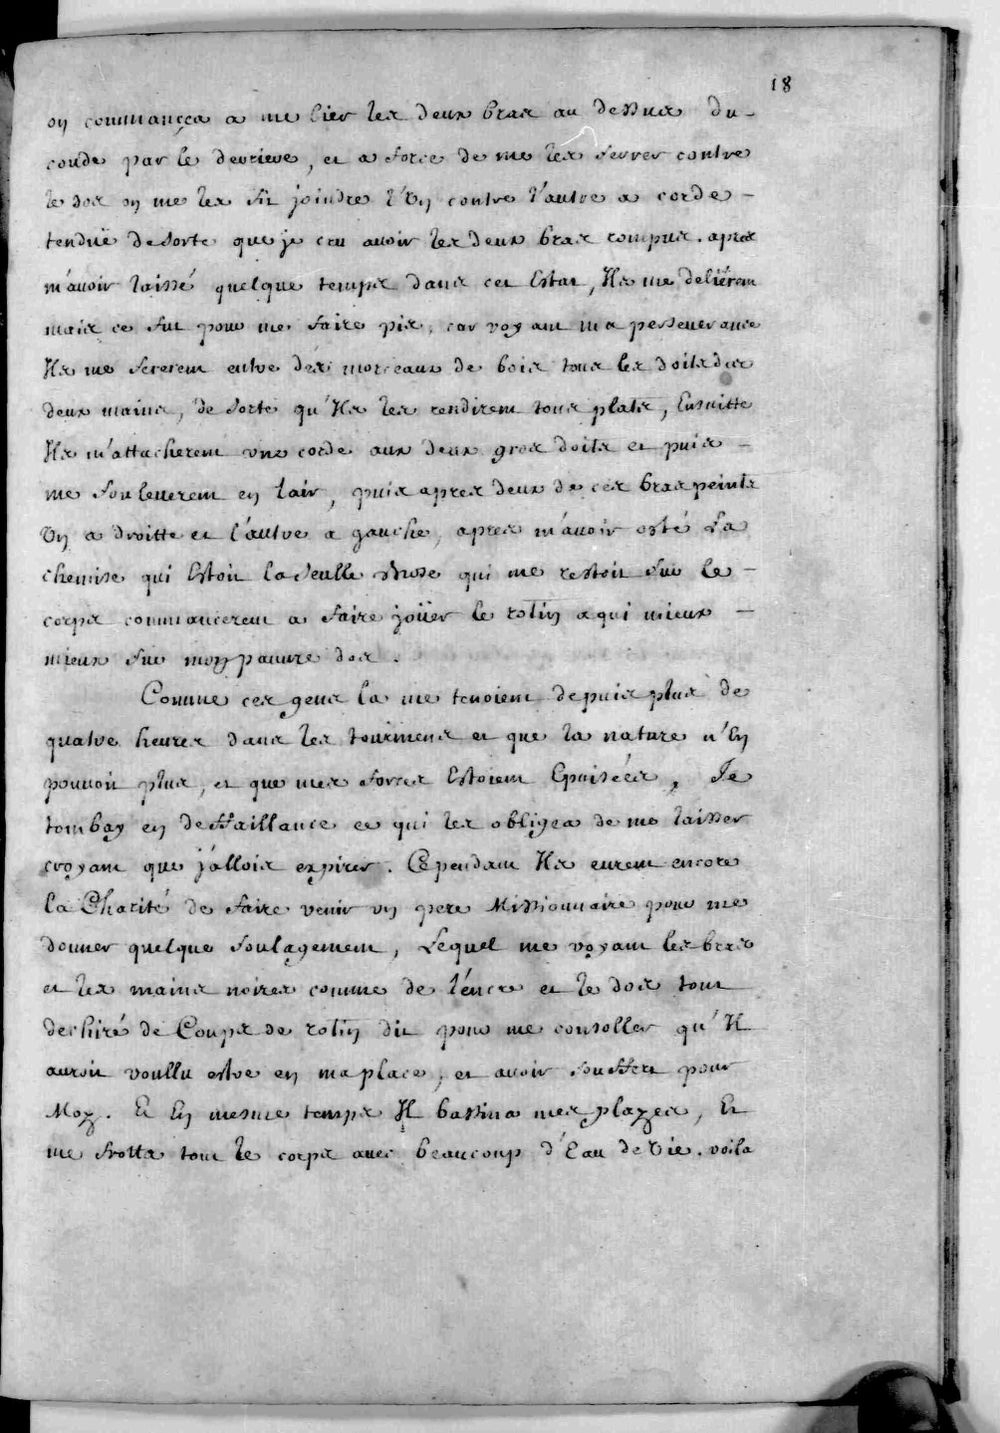 18
on commança a me lier les deux bras au dessus du-
coude par le derriere, et a force de me les serrer contre
le dos on me les fit joindre l'un contre l'autre a corde -
tenduë de sorte que je cru avoir les deux bras rompus. apres
m'avoir laissé quelque temps dans cet Estat, Ils me deliërent
mais ce fut pour me faire pis, car voyant ma perseverance
Ils me sererent entre des morceaux de bois tous les doits des
deux mains, de sorte qu'Ils les rendirent tous plats, Ensuitte
Ils m'attacherent une corde aux deux gros doits et puis -
me souleverent en lair, puis apres deux de ces bras peints
Un a droitte et l'autre a gauche, apres m'avoir osté La
chemise qui Estoit la seulle chose qui me restoit sur le -
corps commancerent a faire joüer le rotin a qui mieux -
mieux sur mon pauvre dos.
Comme ces gens la me tenoient depuis plus de
quatre heures dans les tourmens et que la nature n'En
pouvoit plus, et que mes forces Estoient Epuisées, Je
tombay en deffaillance ce qui les obligea de me laisser
croyant que j'allois expirer. Cependant Ils eurent encore
la Charité de faire venir un pere Missionnaire pour me
donner quelque soulagement, Lequel me voyant les bras
et les mains noires comme de l'encre et le dos tout
dechiré de Coups de rotin dit pour me consoller qu'Il
auroit voullu estre en ma place, et avoir souffert pour
Moy. Et En mesme temps Il bassina mes playes, Et
me frotta tout le corps avec beaucoup d'Eau de Vie. voila